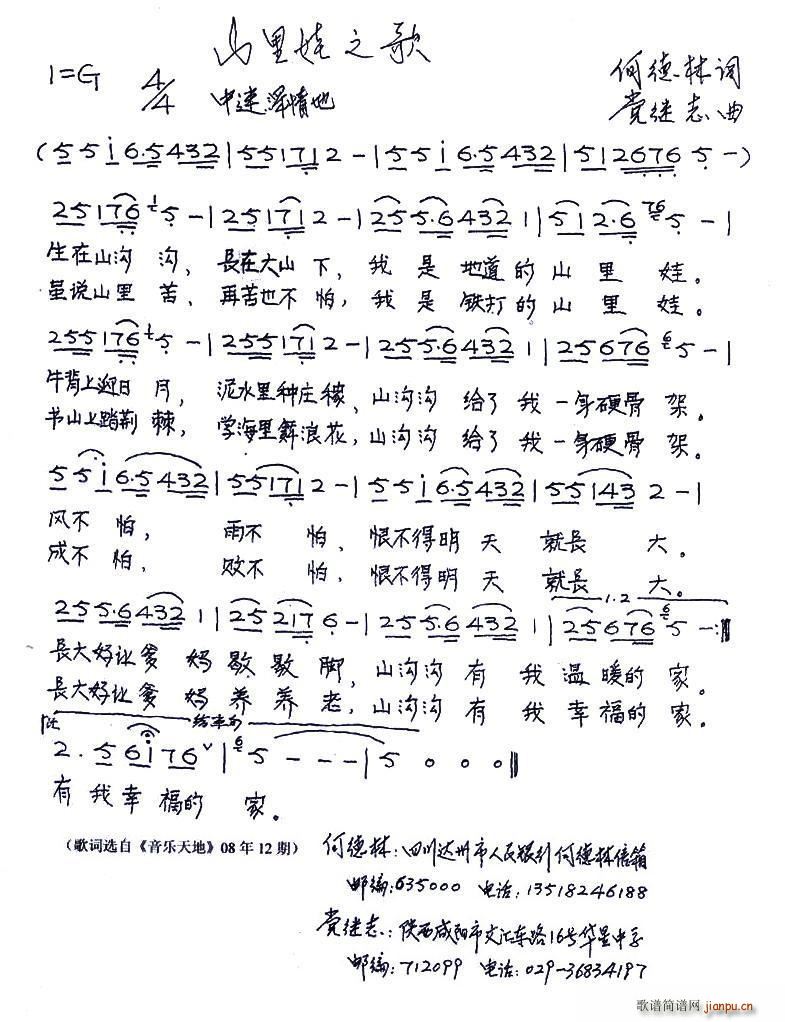 山里娃之歌
1=G 4/4 中速 深情地
何德林 词
党继志 曲
(5 5 i 6·5 4 3 2 | 5 5 1 7 1 2 - | 5 5 i 6·5 4 3 2 | 5 1 2 6 7 6 5 - )
2 5 1 7 6 1 5 - | 2 5 1 7 1 2 - | 2 5 5·6 4 3 2 1 | 5 1 2·6 76 5 - |
生在山沟 沟, 長在大山 下, 我 是 地道的 山 里 娃。
虽说山里 苦, 再苦也不 怕, 我 是 铁打的 山 里 娃。
2 5 5 1 7 6 1 5 - | 2 5 5 1 7 1 2 - | 2 5 5·6 4 3 2 1 | 2 5 6 7 6 6 5 - |
牛背上迎日 月, 泥水里种庄稼, 山沟沟 给了 我 一身硬骨 架。
书山上踏荆 棘, 学海里舞浪花, 山沟沟 给了 我 一身硬骨 架。
5 5 i 6·5 4 3 2 | 5 5 1 7 1 2 - | 5 5 i 6·5 4 3 2 | 5 5 1 4 3 2 - |
风不 怕, 雨不 怕, 恨不得明 天 就長 大。
成不 怕, 败不 怕, 恨不得明 天 就長 大。
1.2
2 5 5·6 4 3 2 1 | 2 5 2 1 7 6 - | 2 5 5·6 4 3 2 1 | 2 5 6 7 6 6 5 - :‖
長大好让爹 妈 歇 歇 脚, 山沟沟 有 我 温 暖的 家。
長大好让爹 妈 养 养 老, 山沟沟 有 我 幸 福的 家。
结束句
2· 5 6 i 7 6 ∨ | 6 5 - - - | 5 0 0 0 ‖
有 我 幸 福的 家。
(歌词选自《音乐天地》08 年 12 期)
何德林: 四川达州市人民银行何德林信箱
邮编:635000 电话:13518246188
党继志: 陕西咸阳市文汇东路16号华星中学
邮编:712099 电话:029-36834197
歌谱简谱网
jianpu.cn